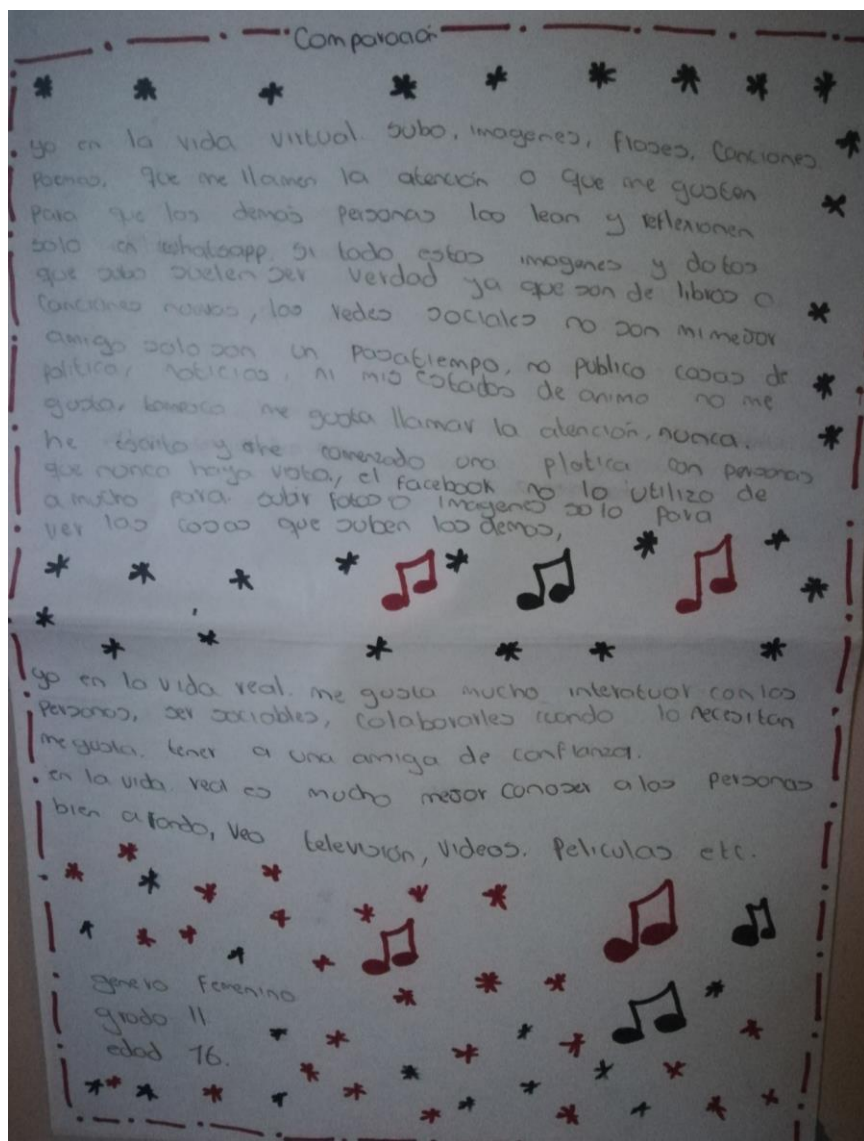 Comparación
yo en la vida virtual. subo, imagenes, frases, Canciones
Poemas, que me llamen la atención o que me gusten
para que las demas personas los lean y reflexionen
solo en whatsapp. si todo estas imagenes y datos
que subo suelen ser verdad ya que son de libros o
Canciones nuevas, las redes sociales no son mi mejor
amigo solo son un Pasatiempo, no publico cosas de
politica, noticias, ni mis estados de animo no me
gusta, me gusta llamar la atención, nunca.
he escrito y comenzado una platica con personas
que nunca haya vista, el facebook no lo utilizo de
a mucho para subir fotos o imagenes solo para
ver las cosas que suben los demas,
yo en la vida real. me gusta mucho interatuar con las
Personas, ser sociables, colaborarles cuando lo necesitan
me gusta. tener a una amiga de confianza.
en la vida real es mucho mejor conoser a las personas
bien afondo, veo television, videos. Peliculas etc.
genero Femenino
grado 11
edad 16.